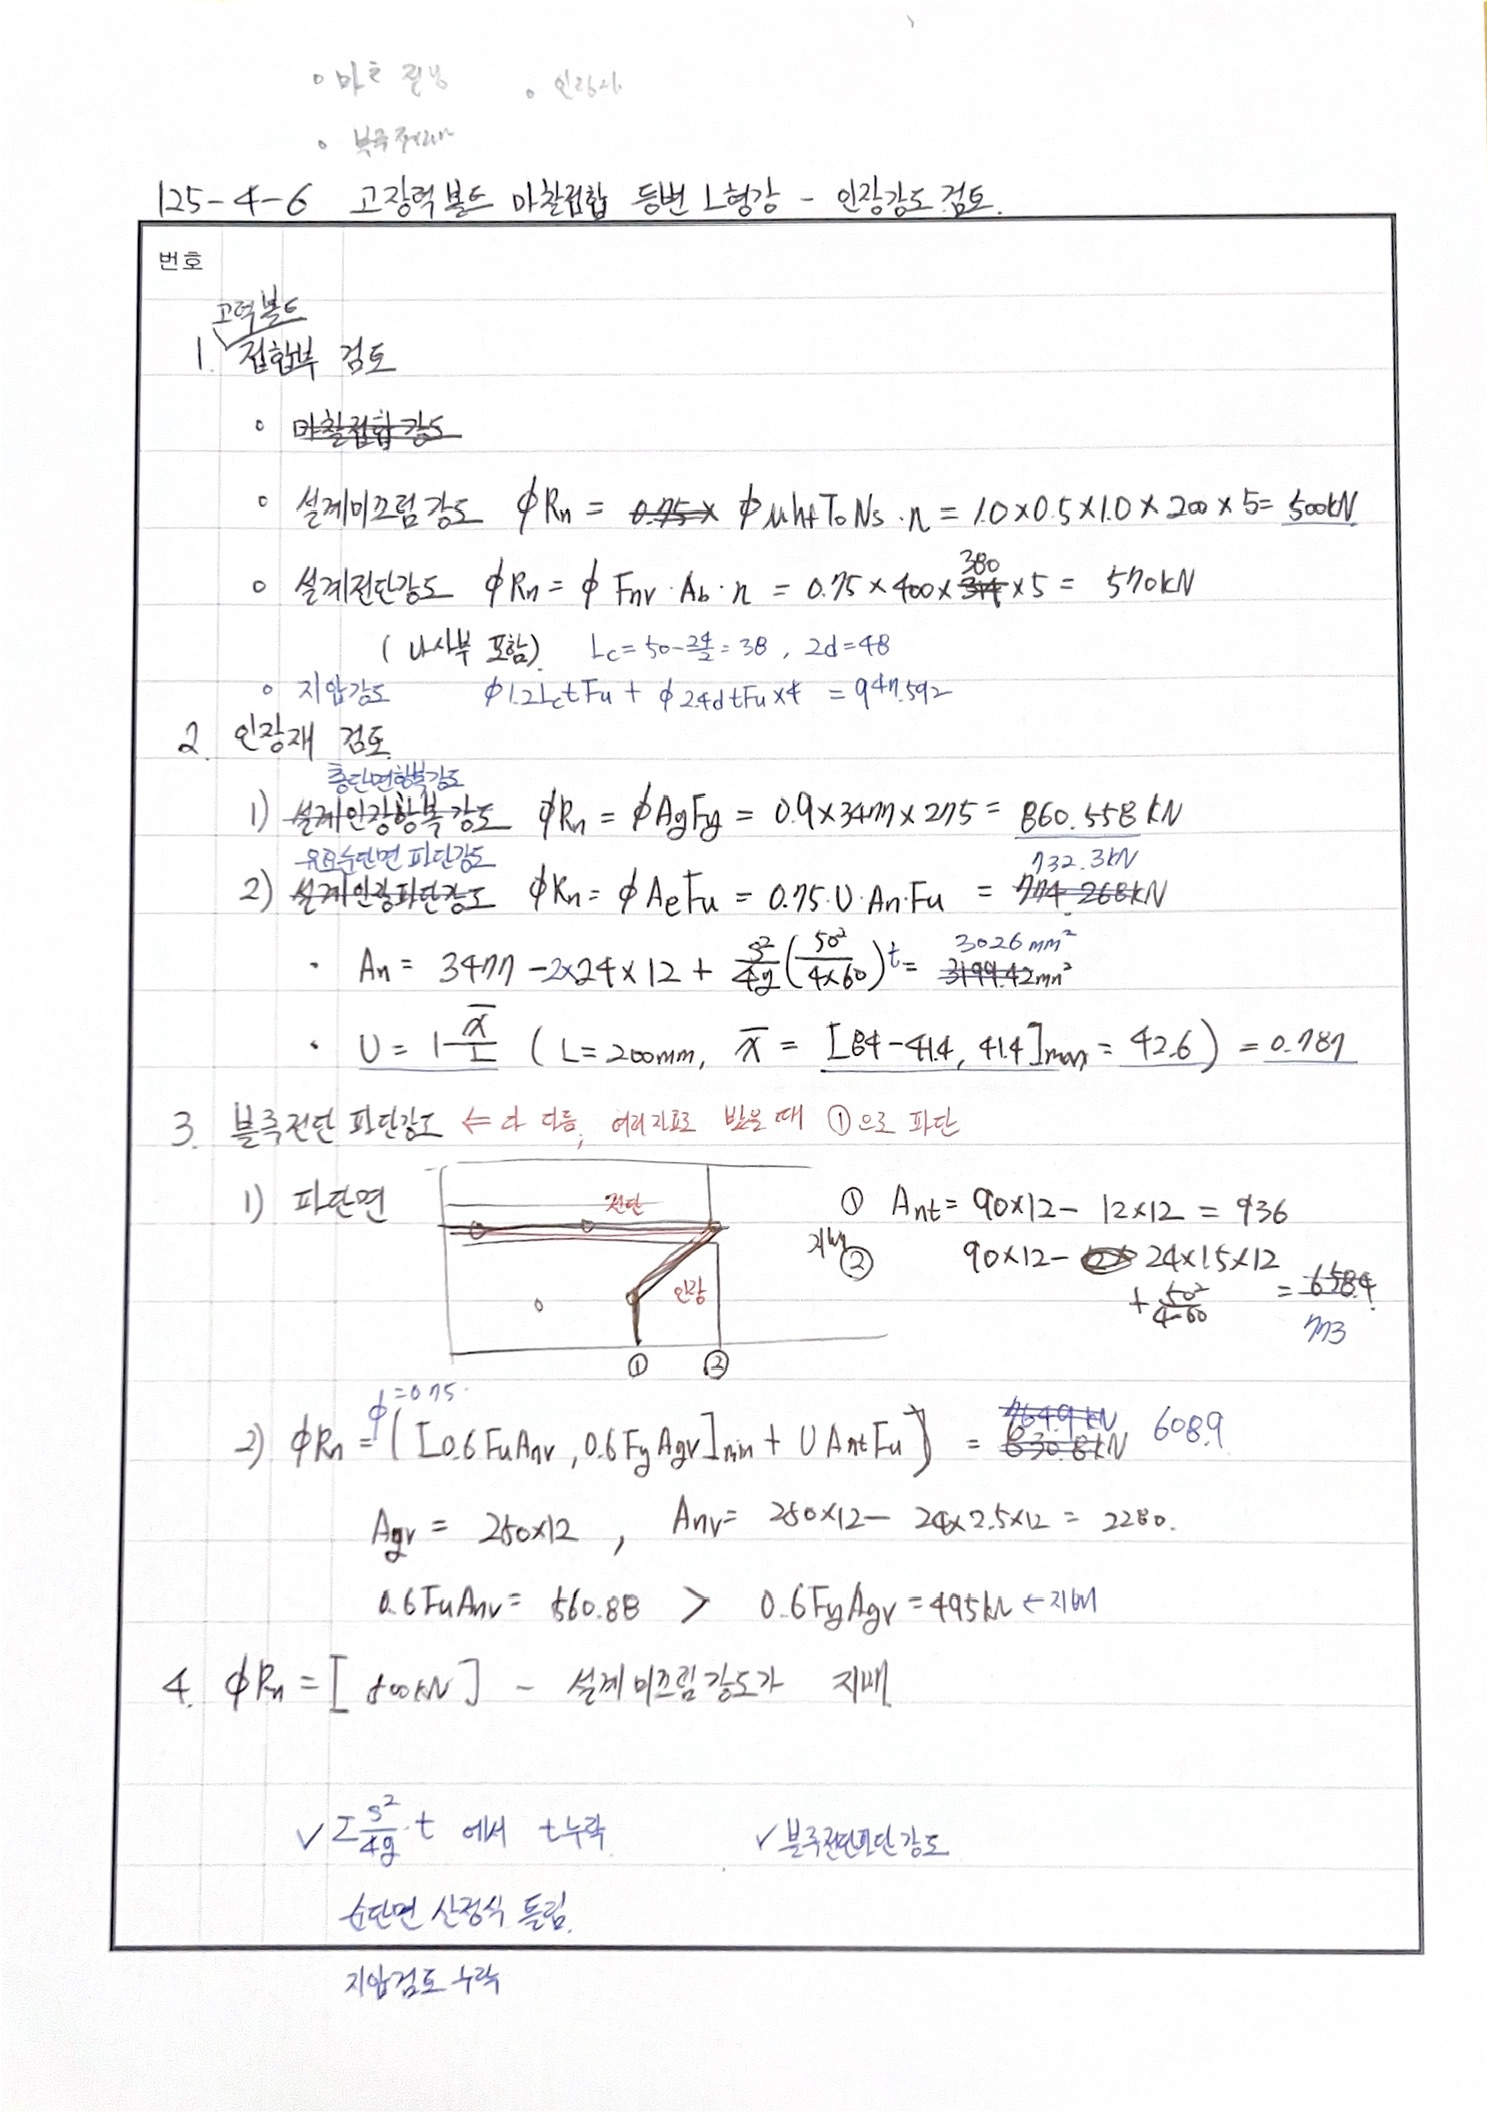 ○ 마찰
○ 인장재
○ 블록전단
125-4-6 고장력볼트 마찰접합 등변 L형강 - 인장강도 검토.
번호
고력볼트
1. 접합부 검토
○ 마찰접합강도
○ 설계미끄럼강도 ϕRn = 0.75× ϕμhfToNs·n = 1.0×0.5×1.0×200×5= 500kN
380
○ 설계전단강도 ϕRn = ϕ Fnv·Ab·n = 0.75×400×314×5 = 570kN
(나사부 포함). Lc=50-24/2=38, 2d=48
○ 지압강도 ϕ1.2LctFu + ϕ2.4dtFu×4 = 947.592
2. 인장재 검토
총단면항복강도
1) 설계인장항복강도 ϕRn = ϕAgFy = 0.9×3477×275 = 860.558kN
유효순단면 파단강도 732.3kN
2) 설계인장파단강도 ϕRn = ϕAeFu = 0.75·U·An·Fu = 774.268kN
3026mm²
· An = 3477-2×24×12 + s²/4g (50²/4×60)t = 3199.42mm²
· U = 1-x̄/L (L=200mm, x̄ = [84-41.4, 41.4]max = 42.6) = 0.787
3. 블록전단 파단강도 ⇐ 다 다름, 여러자료로 봤을때 ①으로 파단
1) 파단면 전단 인장 ① ②
① Ant = 90×12- 12×12 = 936
지배 ② 90×12- 24×1.5×12
+ 50²/4·60 = 658.4
773
ϕ=0.75.
2) ϕRn = ϕ([0.6FuAnv, 0.6FyAgv]min + UAntFu) = 830.8kN 608.9
Agv = 250×12, Anv= 250×12- 24×2.5×12 = 2280.
0.6FuAnv = 560.88 > 0.6FyAgv = 495kN ← 지배
4. ϕRn = [500kN] - 설계미끄럼강도가 지배
✓ Σ s²/4g ·t 에서 t누락. ✓ 블록전단파단강도
순단면 산정식 틀림.
지압검토 누락